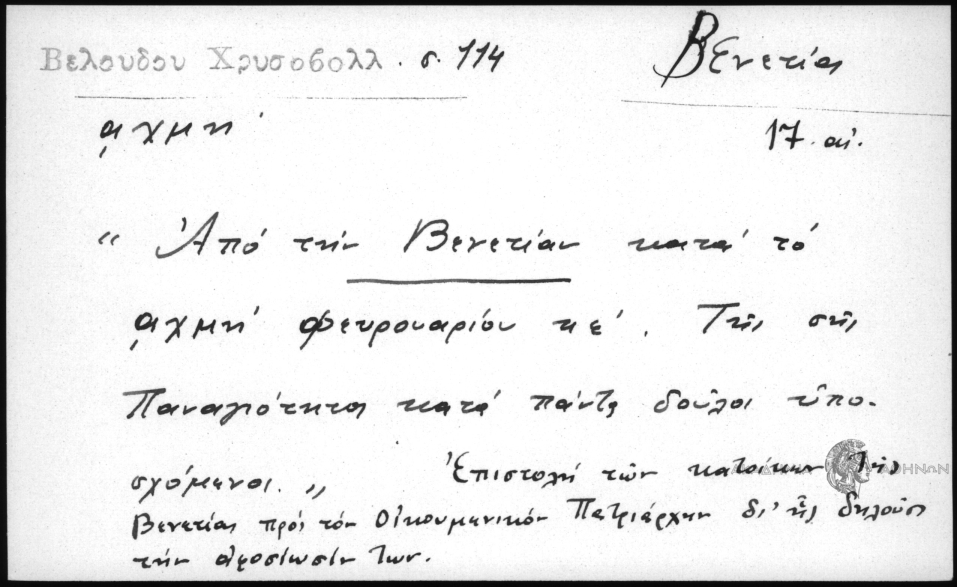 Βελούδου Χρυσόβολλ. σ. 114
Βενετία
͵αχμη'
17. αἰ.
" Ἀπό τήν Βενετίαν κατά τό
͵αχμη' φευρουαρίου κε'. Τῆς σῆς
Παναγιότητος κατά πάντα δοῦλοι ὑπο-
σχόμενοι. „ Ἐπιστολή τῶν κατοίκων τῆς
Βενετίας πρός τόν Οἰκουμενικόν Πατριάρχην δι' ἧς δηλοῦσι
τήν ἀφοσίωσίν των.